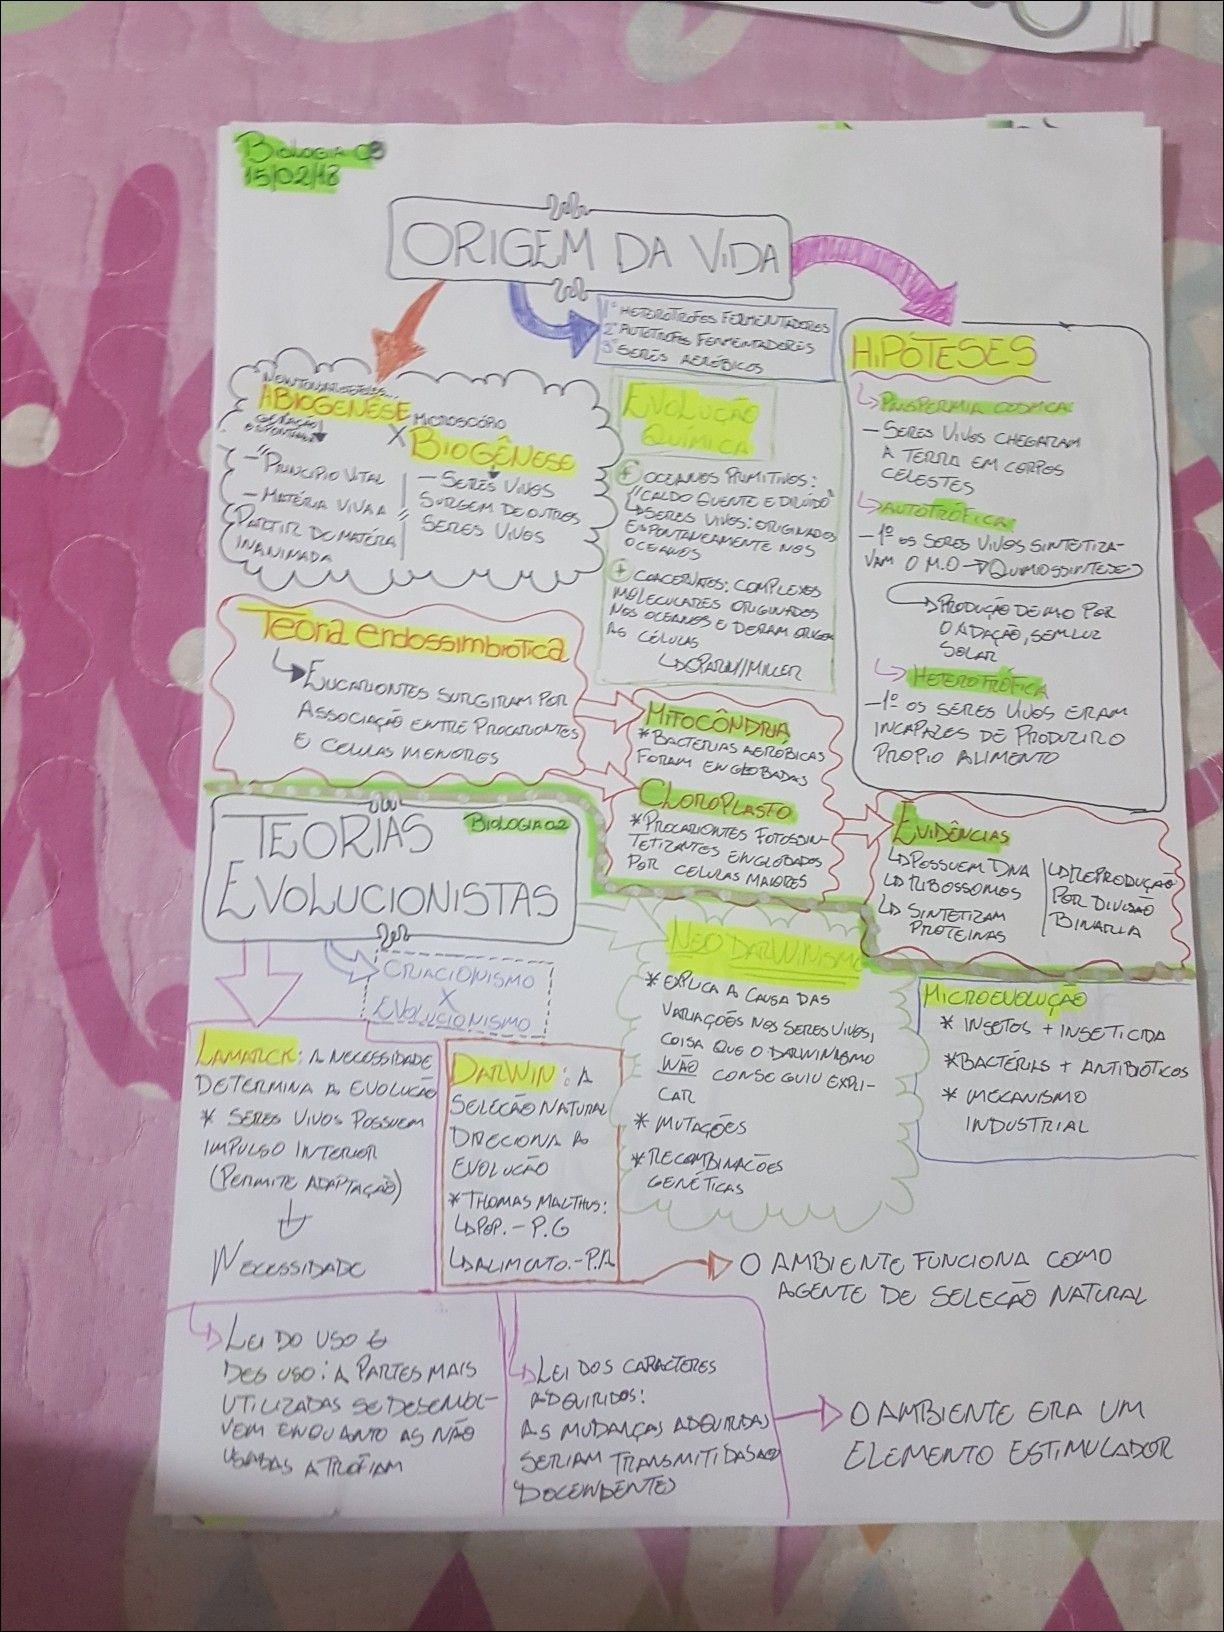 BIOLOGIA 03
15/02/18
ORIGEM DA VIDA
1º HETERÓTROFOS FERMENTADORES
2º AUTÓTROFOS FERMENTADORES
3º SERES AERÓBICOS
ABIOGENÊSE
GERAÇÃO
ESPONTÂNEA
- "PRINCIPIO VITAL
- MATÉRIA VIVA A
PARTIR DE MATÉRIA
INANIMADA
X
MICROSCÓPIO
BIOGÊNESE
- SERES VIVOS
SURGEM DE OUTROS
SERES VIVOS
EVOLUÇÃO
QUÍMICA
+ OCEANOS PRIMITIVOS:
"CALDO QUENTE E DILUÍDO"
SERES VIVOS: ORIGINADOS
ESPONTANEAMENTE NOS
OCEANOS
+ COACERVATOS: COMPLEXOS
MOLECULARES ORIGINADOS
NOS OCEANOS E DERAM ORIGEM
AS CÉLULAS
OPARIN/MILLER
HIPÓTESES
PANSPERMIA COSMICA
- SERES VIVOS CHEGARAM
A TERRA EM CORPOS
CELESTES
AUTOTRÓFICA
- 1º OS SERES VIVOS SINTETIZA-
VAM O M.O → QUIMIOSSINTESE
PRODUÇÃO DE MO POR
OXIDAÇÃO, SEM LUZ
SOLAR
HETEROTRÓFICA
- 1º OS SERES VIVOS ERAM
INCAPAZES DE PRODUZIR O
PROPIO ALIMENTO
Teoria endossimbiótica
EUCARIONTES SURGIRAM POR
ASSOCIAÇÃO ENTRE PROCARIONTES
E CELULAS MENORES
MITOCÔNDRIA
* BACTERIAS AERÓBICAS
FORAM ENGLOBADAS
CLOROPLASTO
* PROCARIONTES FOTOSSIN-
TETIZANTES ENGLOBADOS
POR CELULAS MAIORES
EVIDÊNCIAS
POSSUEM DNA
RIBOSSOMOS
SINTETIZAM
PROTEINAS
REPRODUÇÃO
POR DIVISÃO
BINARIA
TEORIAS
EVOLUCIONISTAS
BIOLOGIA 02
CRIACIONISMO
X
EVOLUCIONISMO
LAMARCK: A NECESSIDADE
DETERMINA A EVOLUÇÃO
* SERES VIVOS POSSUEM
IMPULSO INTERIOR
(PERMITE ADAPTAÇÃO)
NECESSIDADE
DARWIN: A
SELEÇÃO NATURAL
DIRECIONA A
EVOLUÇÃO
* THOMAS MALTHUS:
POP. - P.G
ALIMENTO. - P.A
NEO DARWINISMO
* EXPLICA A CAUSA DAS
VARIAÇÕES NOS SERES VIVOS,
COISA QUE O DARWINISMO
NÃO CONSEGUIU EXPLI-
CAR
* MUTAÇÕES
* RECOMBINAÇÕES
GENÉTICAS
MICROEVOLUÇÃO
* INSETOS + INSETICIDA
* BACTÉRIAS + ANTIBIÓTICOS
* MECANISMO
INDUSTRIAL
O AMBIENTE FUNCIONA COMO
AGENTE DE SELEÇÃO NATURAL
LEI DO USO E
DES USO: A PARTES MAIS
UTILIZADAS SE DESENVOL-
VEM ENQUANTO AS NÃO
USADAS ATROFIAM
LEI DOS CARACTERES
ADQUIRIDOS:
AS MUDANÇAS ADQUIRIDAS
SERIAM TRANSMITIDAS AOS
DOCENDENTES
O AMBIENTE ERA UM
ELEMENTO ESTIMULADOR